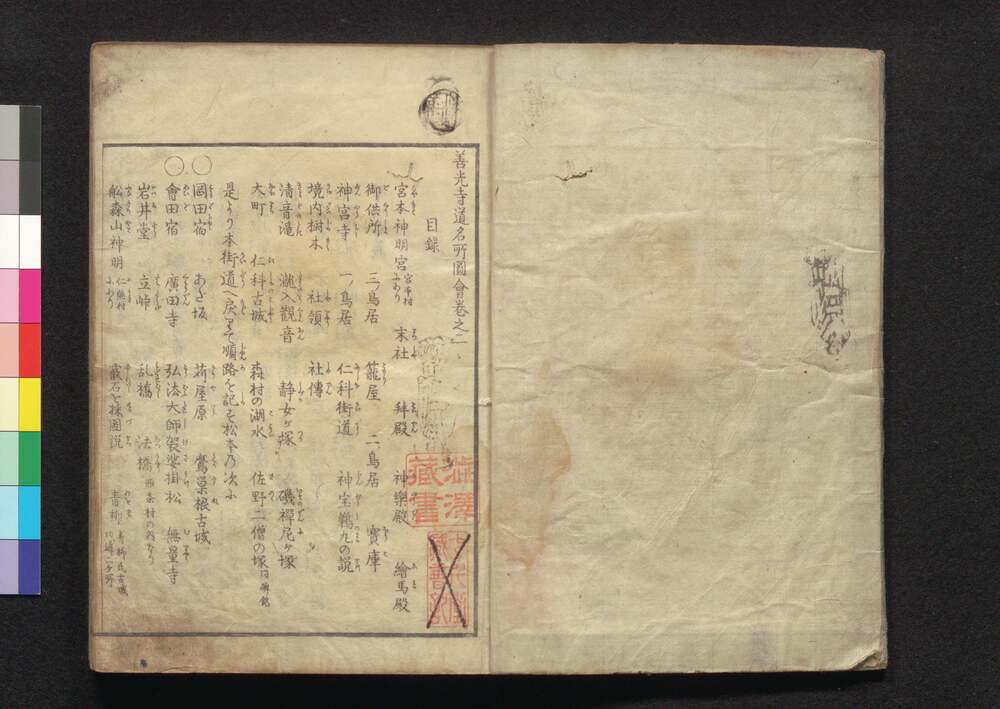 善光寺道名所圖會巻之二
目録
宮本神明宮 宮本村にあり 末社 拜殿 神樂殿 繪馬殿
御供所 三ノ鳥居 籠屋 二ノ鳥居 寶庫
神宮寺 一ノ鳥居 仁科街道 神宝鶴丸の説
境内樹木 社領 社傳
清音滝 瀧入觀音 静女ヶ塚 磯禪尼ヶ塚
大町 仁科古城 森村の湖水 佐野二僧の塚 同碑銘
是より本街道へ戻りて順路を記す松本乃次ふ
岡田宿 あざ坂 苅屋原 鷹巣根古城
會田宿 廣田寺 弘法大師袈裟掛松 無量寺
岩井堂 立峠 乱橋 法橋
舩森山神明 仁熊村にあり
藏書